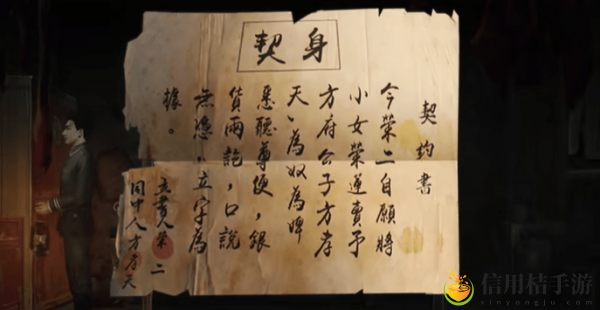 身契
契约書
今榮二自願將
小女榮蓮賣予
方府公子方孝
天、為奴為婢
悉聽尊便,銀
貨兩訖,口說
無憑,立字為
據。
立書人榮二
同中人方孝天
信用桔手游
xinyongju.com